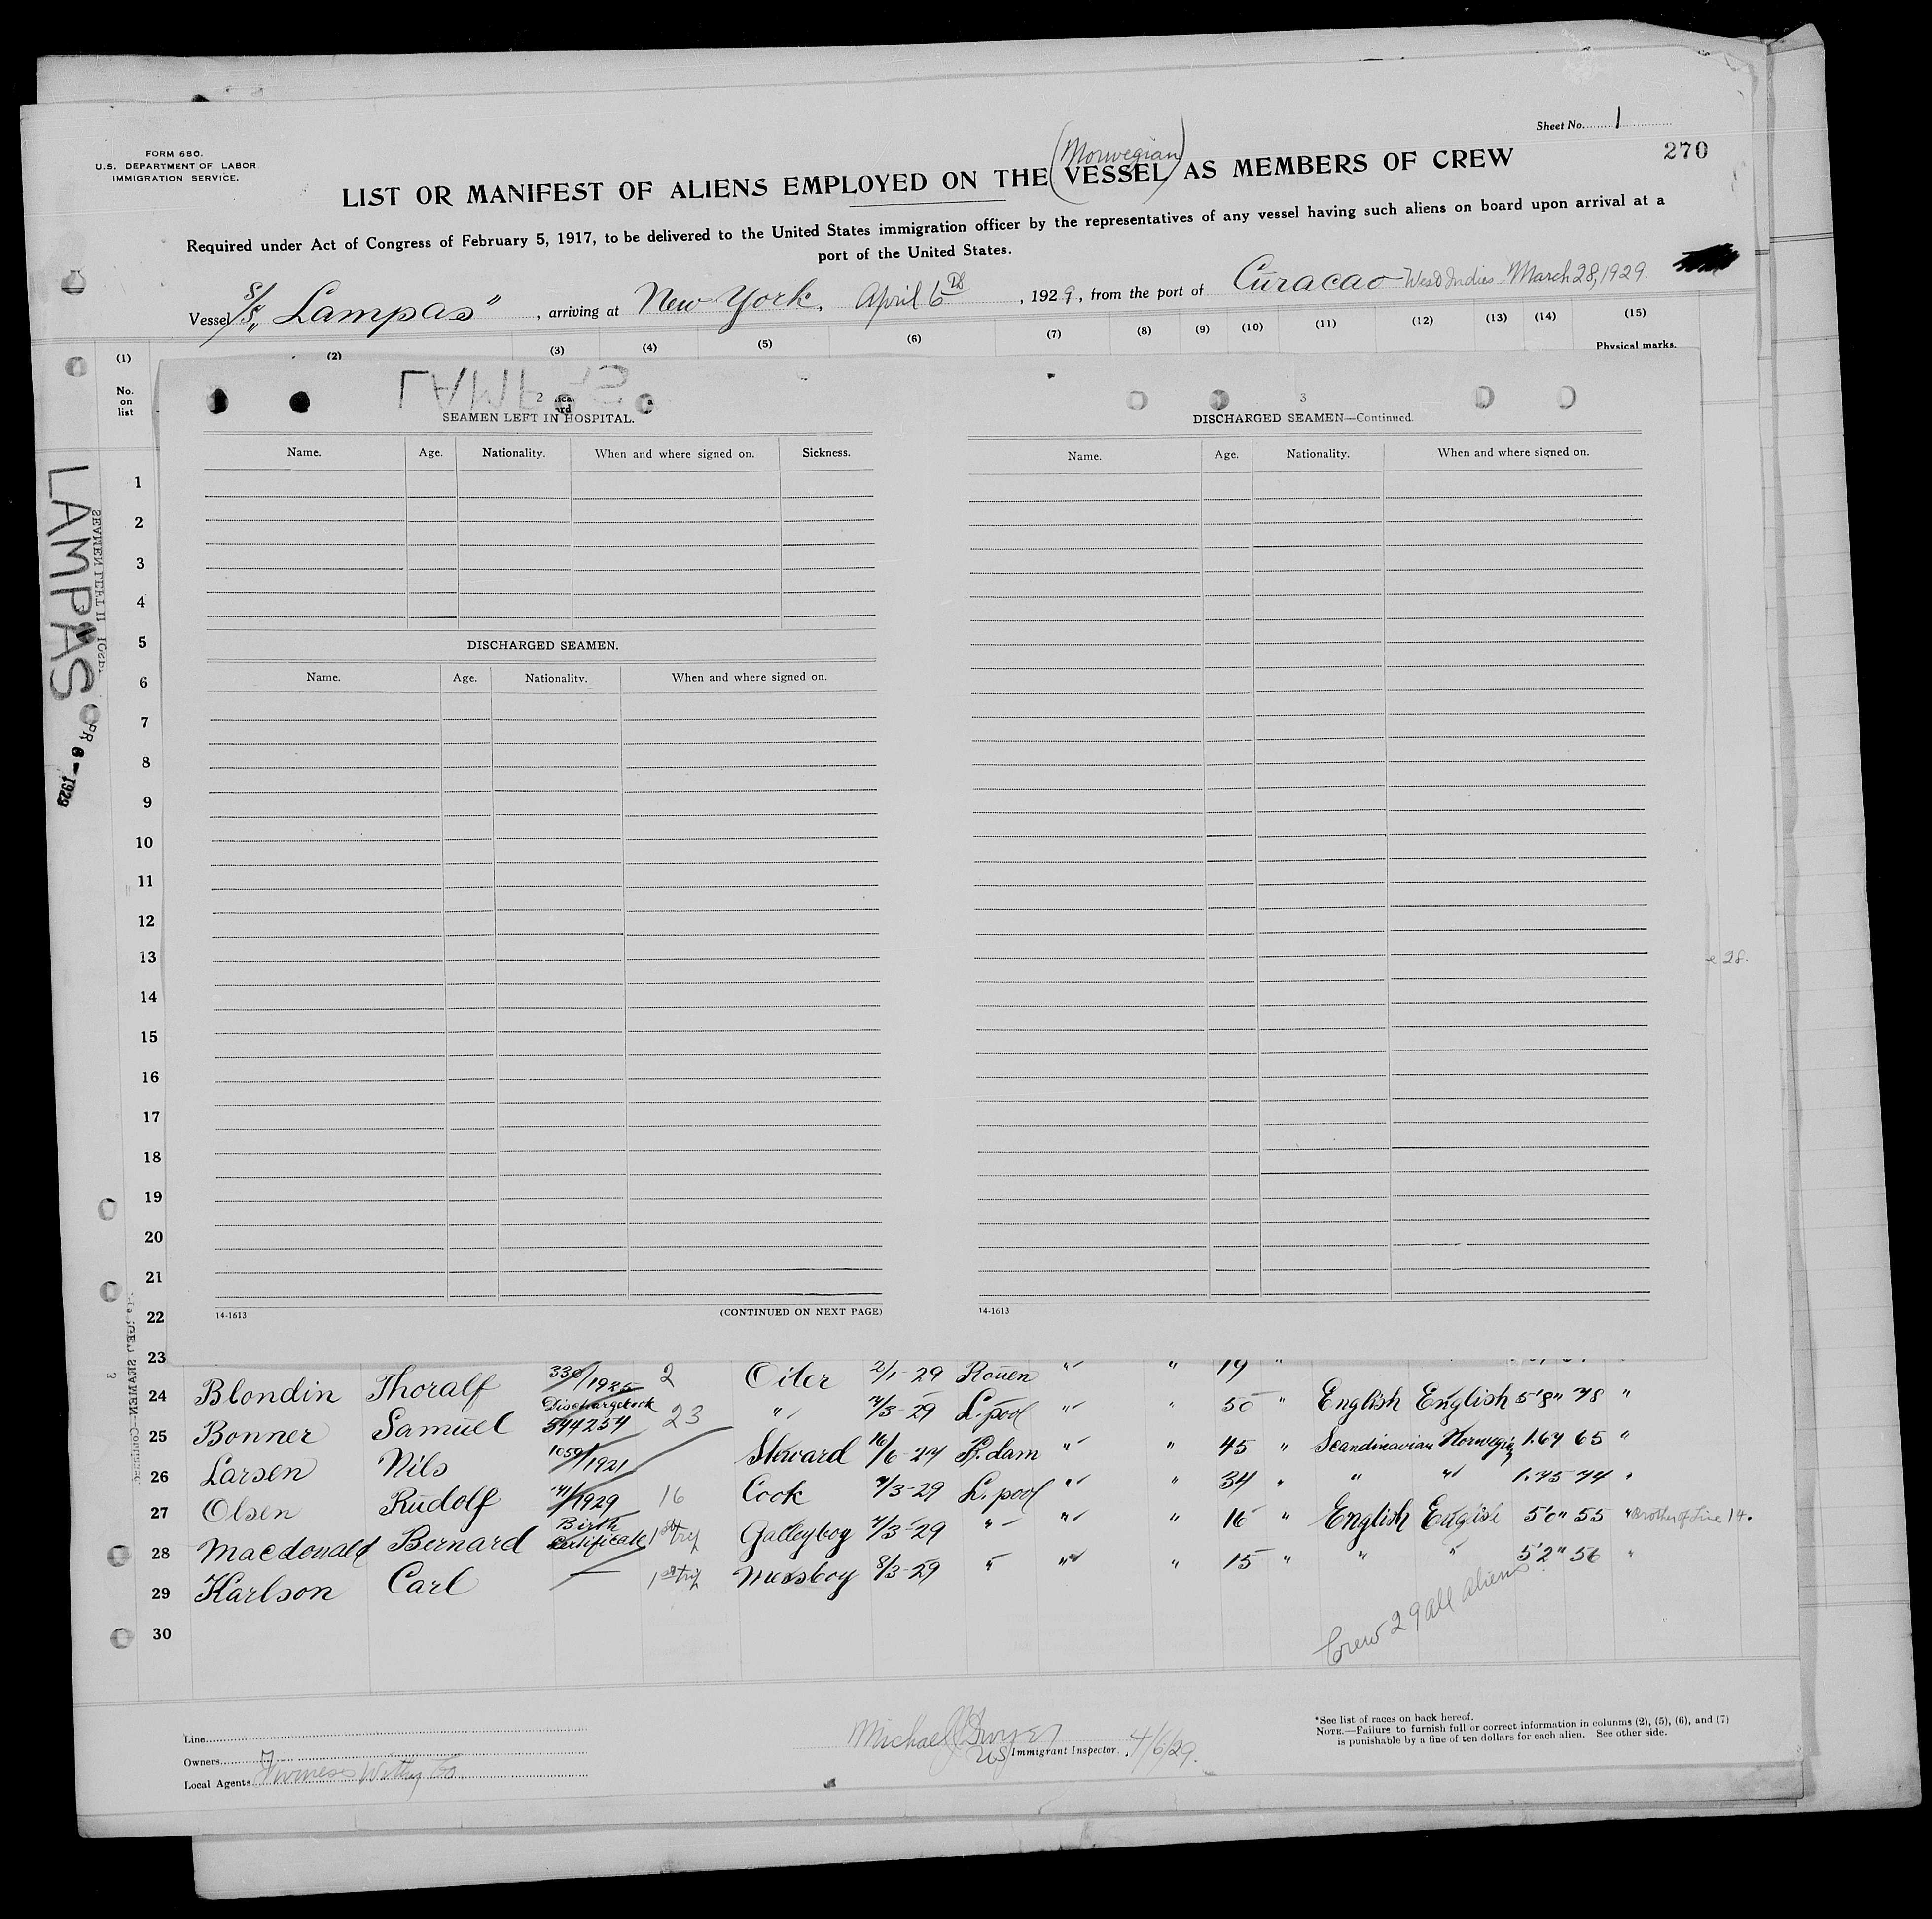 Sheet No. 1
270
FORM 680.
U.S. DEPARTMENT OF LABOR
IMMIGRATION SERVICE.
(Norwegian)
LIST OR MANIFEST OF ALIENS EMPLOYED ON THE VESSEL AS MEMBERS OF CREW
Required under Act of Congress of February 5, 1917, to be delivered to the United States immigration officer by the representatives of any vessel having such aliens on board upon arrival at a
port of the United States.
Vessel S/S "Lampas", arriving at New York, April 6th, 1929, from the port of Curacao West Indies March 28, 1929.
(1) (2) (3) (4) (5) (6) (7) (8) (9) (10) (11) (12) (13) (14) (15)
Physical marks.
No.
on
list
LAMPAS
2
SEAMEN LEFT IN HOSPITAL.
Name. Age. Nationality. When and where signed on. Sickness.
DISCHARGED SEAMEN.
Name. Age. Nationality. When and where signed on.
14-1613 (CONTINUED ON NEXT PAGE)
3
DISCHARGED SEAMEN—Continued.
Name. Age. Nationality. When and where signed on.
14-1613
LAMPAS
SEAMEN LEFT
1929
1
2
3
4
5
6
7
8
9
10
11
12
13
28.
14
15
16
17
18
19
20
21
22
23
24 Blondin Thoralf 330/1925 2 Oiler 2/1-29 Rouen " " 19 "
25 Bonner Samuel Dischargebook 544254 23 " 7/3-29 L.pool " " 50 " English English 5'8" 78 "
26 Larsen Nils 1059/1921 Steward 16/6-27 R.dam " " 45 " Scandinavian Norwegian 1.67 65 "
27 Olsen Rudolf 1929 16 Cook 7/3-29 L.pool " " 34 " " " 1.75 74 "
28 Macdonald Bernard Birth Certificate 1st trip Galleyboy 7/3-29 " " " 16 " English English 5'6" 55 " Brother of Line 14.
29 Karlson Carl — 1st trip Messboy 8/3-29 " " " 15 " " " 5'2" 56 "
30
Crew 29 all aliens
Line
Owners
Local Agents Furness Withy Co.
Michael J Dwyer
US Immigrant Inspector. 4/6/29.
*See list of races on back hereof.
NOTE.—Failure to furnish full or correct information in columns (2), (5), (6), and (7)
is punishable by a fine of ten dollars for each alien. See other side.